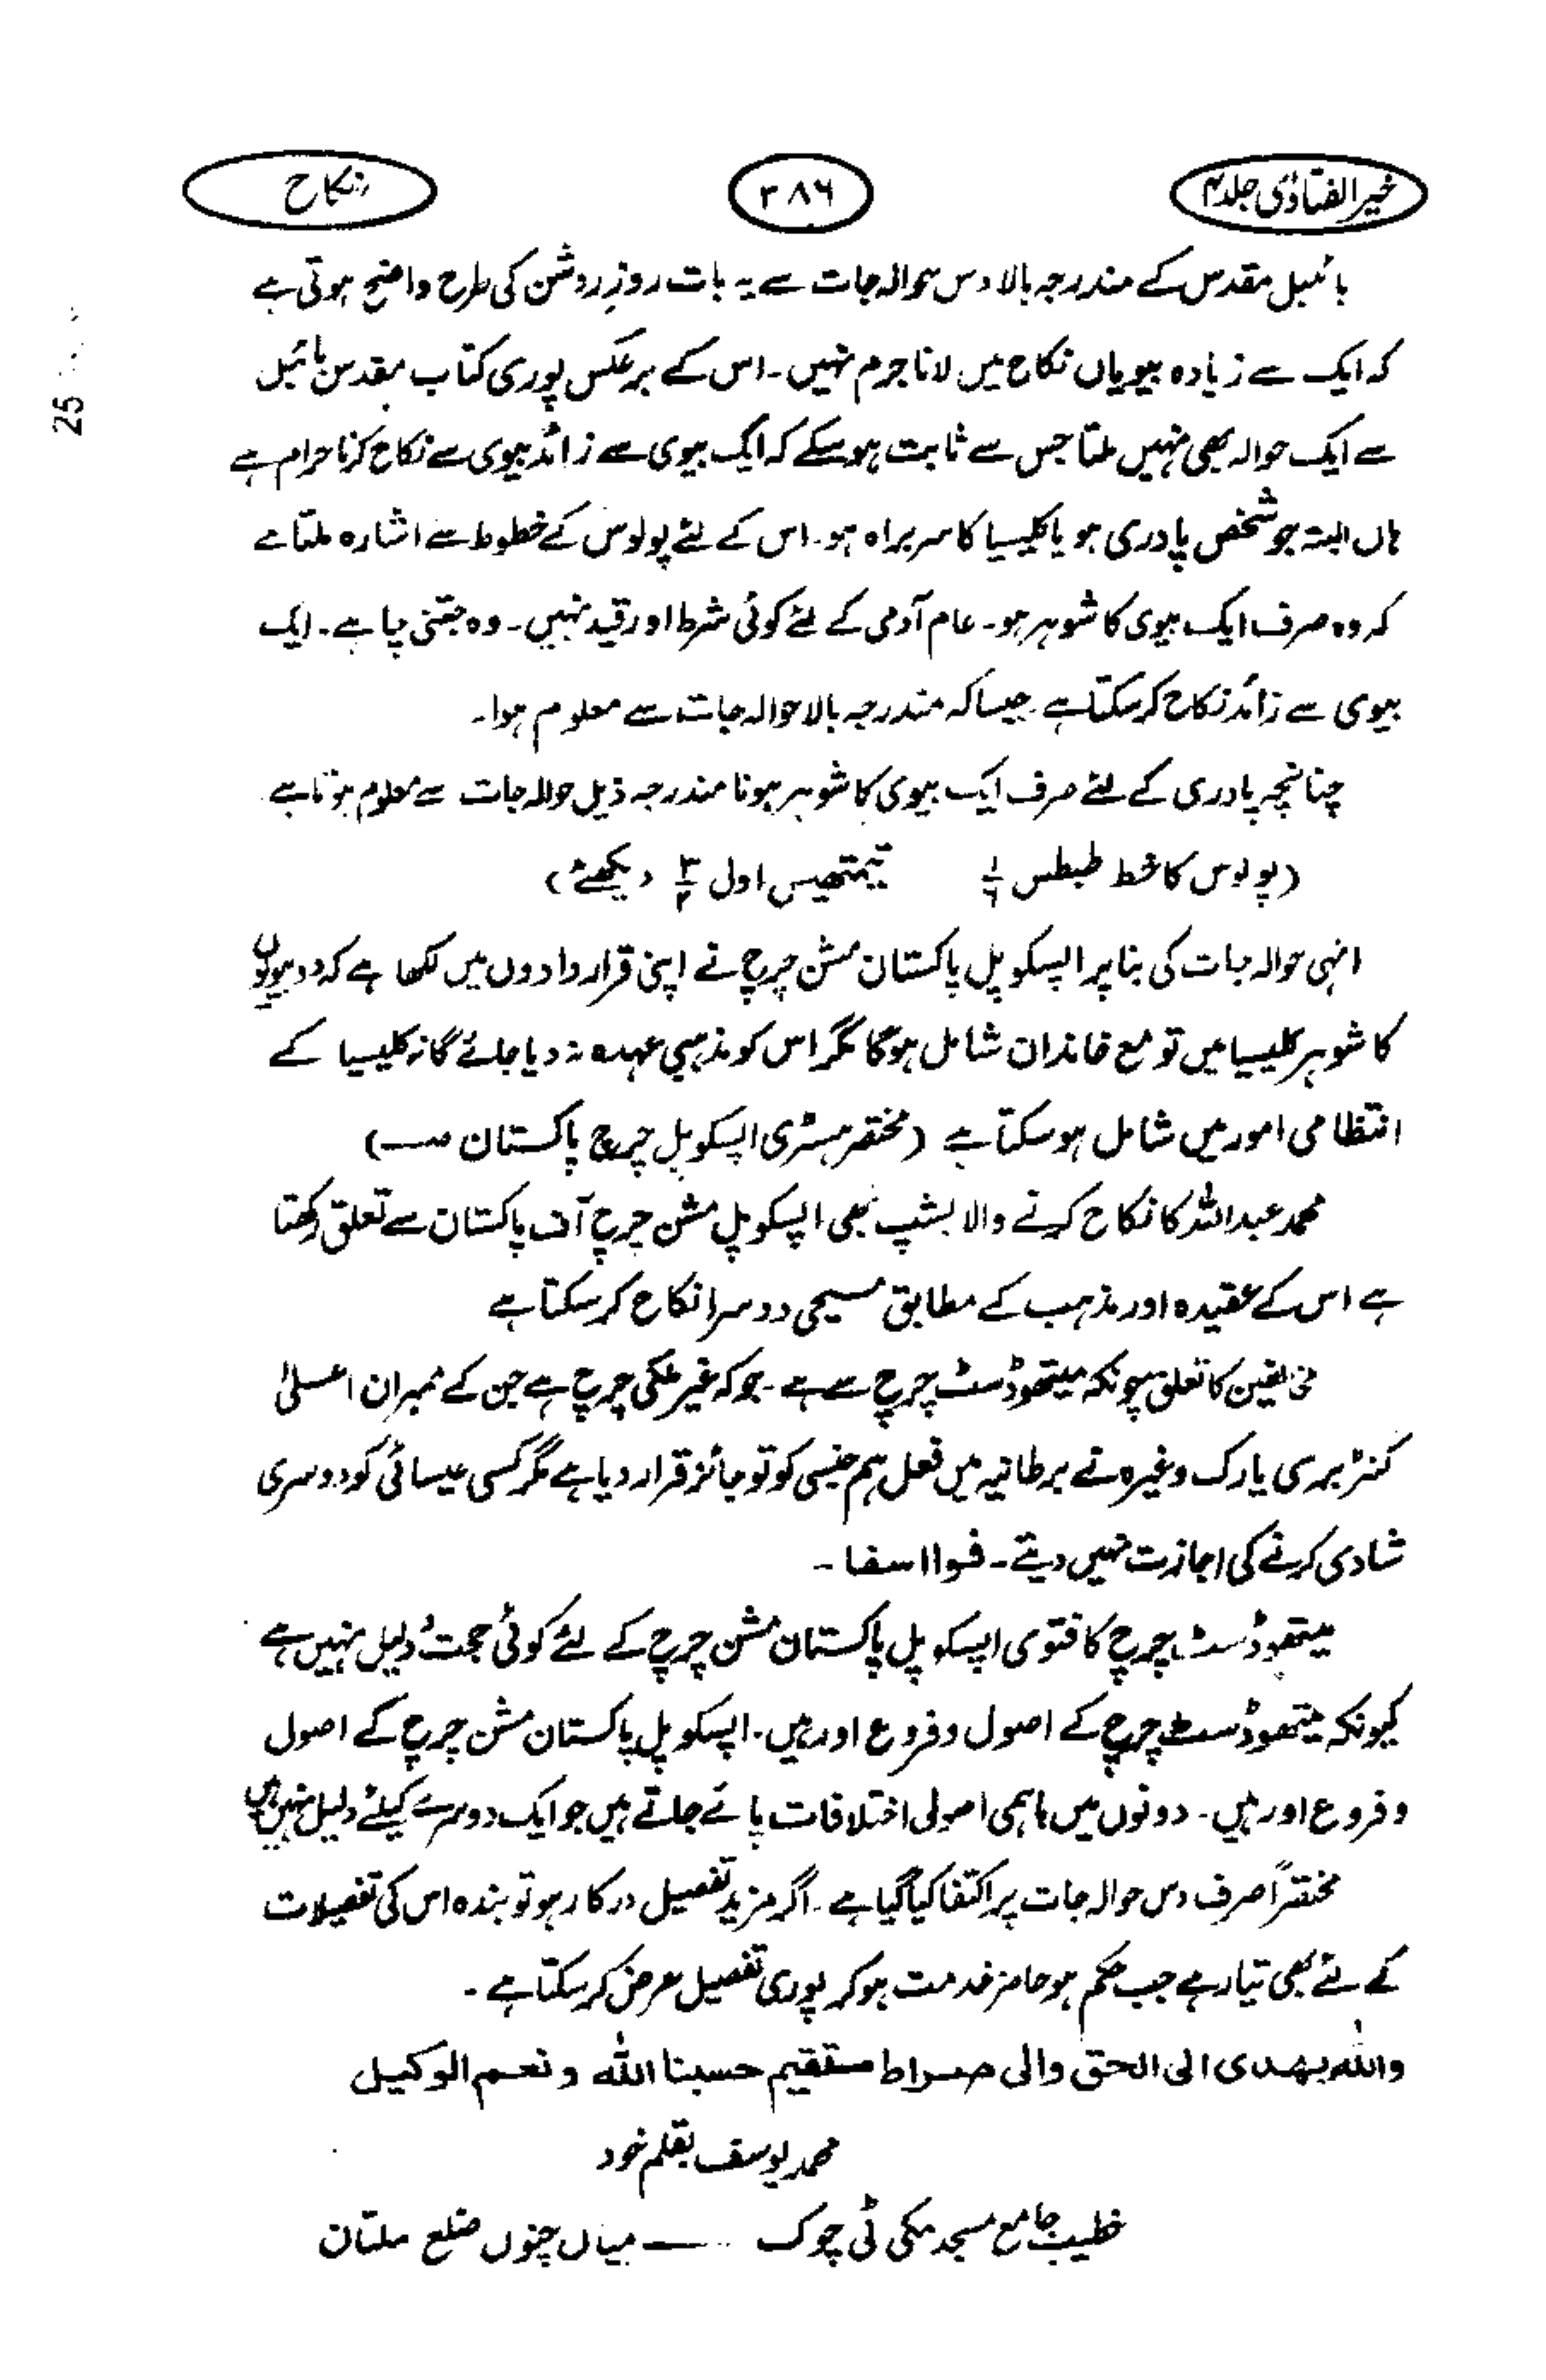 خیر الفتاوٰی جلد ۴
۳۸۶
نکاح
بائبل مقدس کے مندرجہ بالا دس حوالہ جات سے یہ بات روزِ روشن کی طرح واضح ہوتی ہے
کہ ایک سے زیادہ بیویاں نکاح میں لانا جرم نہیں ۔ اس کے برعکس پوری کتاب مقدس بائبل
سے ایک حوالہ بھی نہیں ملتا جس سے ثابت ہو سکے کہ ایک بیوی سے زائد بیوی سے نکاح کرنا حرام ہے
ہاں البتہ جو شخص پادری ہو یا کلیسیا کا سربراہ ہو ۔ اس کے لئے پولوس کے خطوط سے اشارہ ملتا ہے
کہ وہ صرف ایک بیوی کا شوہر ہو ۔ عام آدمی کے لئے کوئی شرط اور قید نہیں ۔ وہ جتنی چاہے ۔ ایک
بیوی سے زائد نکاح کر سکتا ہے ۔ جیسا کہ مندرجہ بالا حوالہ جات سے معلوم ہوا ۔
چنانچہ پادری کے لئے صرف ایک بیوی کا شوہر ہونا مندرجہ ذیل حوالہ جات سے معلوم ہوتا ہے
(پولوس کا خط طیطس ۱/۶ تیمتھیس اول ۳/۲ دیکھئے)
انہی حوالہ جات کی بنا پر اپسکوپل پاکستان مشن چرچ نے اپنی قراردادوں میں لکھا ہے کہ دو بیویوں
کا شوہر کلیسیا میں تو مع خاندان شامل ہوگا مگر اس کو مذہبی عہدہ نہ دیا جائے گا نہ کلیسیا کے
انتظامی امور میں شامل ہو سکتا ہے (مختصر ہسٹری اپسکوپل چرچ پاکستان صـ)
محمد عبداللہ کا نکاح کرنے والا بشپ بھی اپسکوپل مشن چرچ آف پاکستان سے تعلق رکھتا
ہے اس کے عقیدہ اور مذہب کے مطابق مسیحی دوسرا نکاح کر سکتا ہے
مخالفین کا تعلق چونکہ میتھوڈسٹ چرچ سے ہے ۔ جو کہ غیر ملکی چرچ ہے جن کے ممبران اعلیٰ
کنٹربری یارک وغیرہ نے برطانیہ میں فعل ہم جنسی کو تو جائز قرار دیا ہے مگر کسی عیسائی کو دوسری
شادی کرنے کی اجازت نہیں دیتے ۔ فوا اسفا ۔
میتھوڈسٹ چرچ کا فتوی اپسکوپل پاکستان مشن چرچ کے لئے کوئی حجت و دلیل نہیں ہے
کیونکہ میتھوڈسٹ چرچ کے اصول و فروع اور ہیں ۔ اپسکوپل پاکستان مشن چرچ کے اصول
و فروع اور ہیں ۔ دونوں میں باہمی اصولی اختلافات پائے جاتے ہیں جو ایک دوسرے کیلئے دلیل نہیں ہیں
مختصراً صرف دس حوالہ جات پر اکتفا کیا گیا ہے ۔ اگر مزید تفصیل درکار ہو تو بندہ اس کی تفصیلات
کے لئے بھی تیار ہے جب حکم ہو حاضر خدمت ہو کر پوری تفصیل عرض کر سکتا ہے ۔
واللہ یھدی الی الحق والی صراط مستقیم حسبنا اللہ و نعم الوکیل
محمد یوسف بقلم خود
خطیب جامع مسجد مکی ٹی چوک ــــ میاں چنوں ضلع ملتان
25